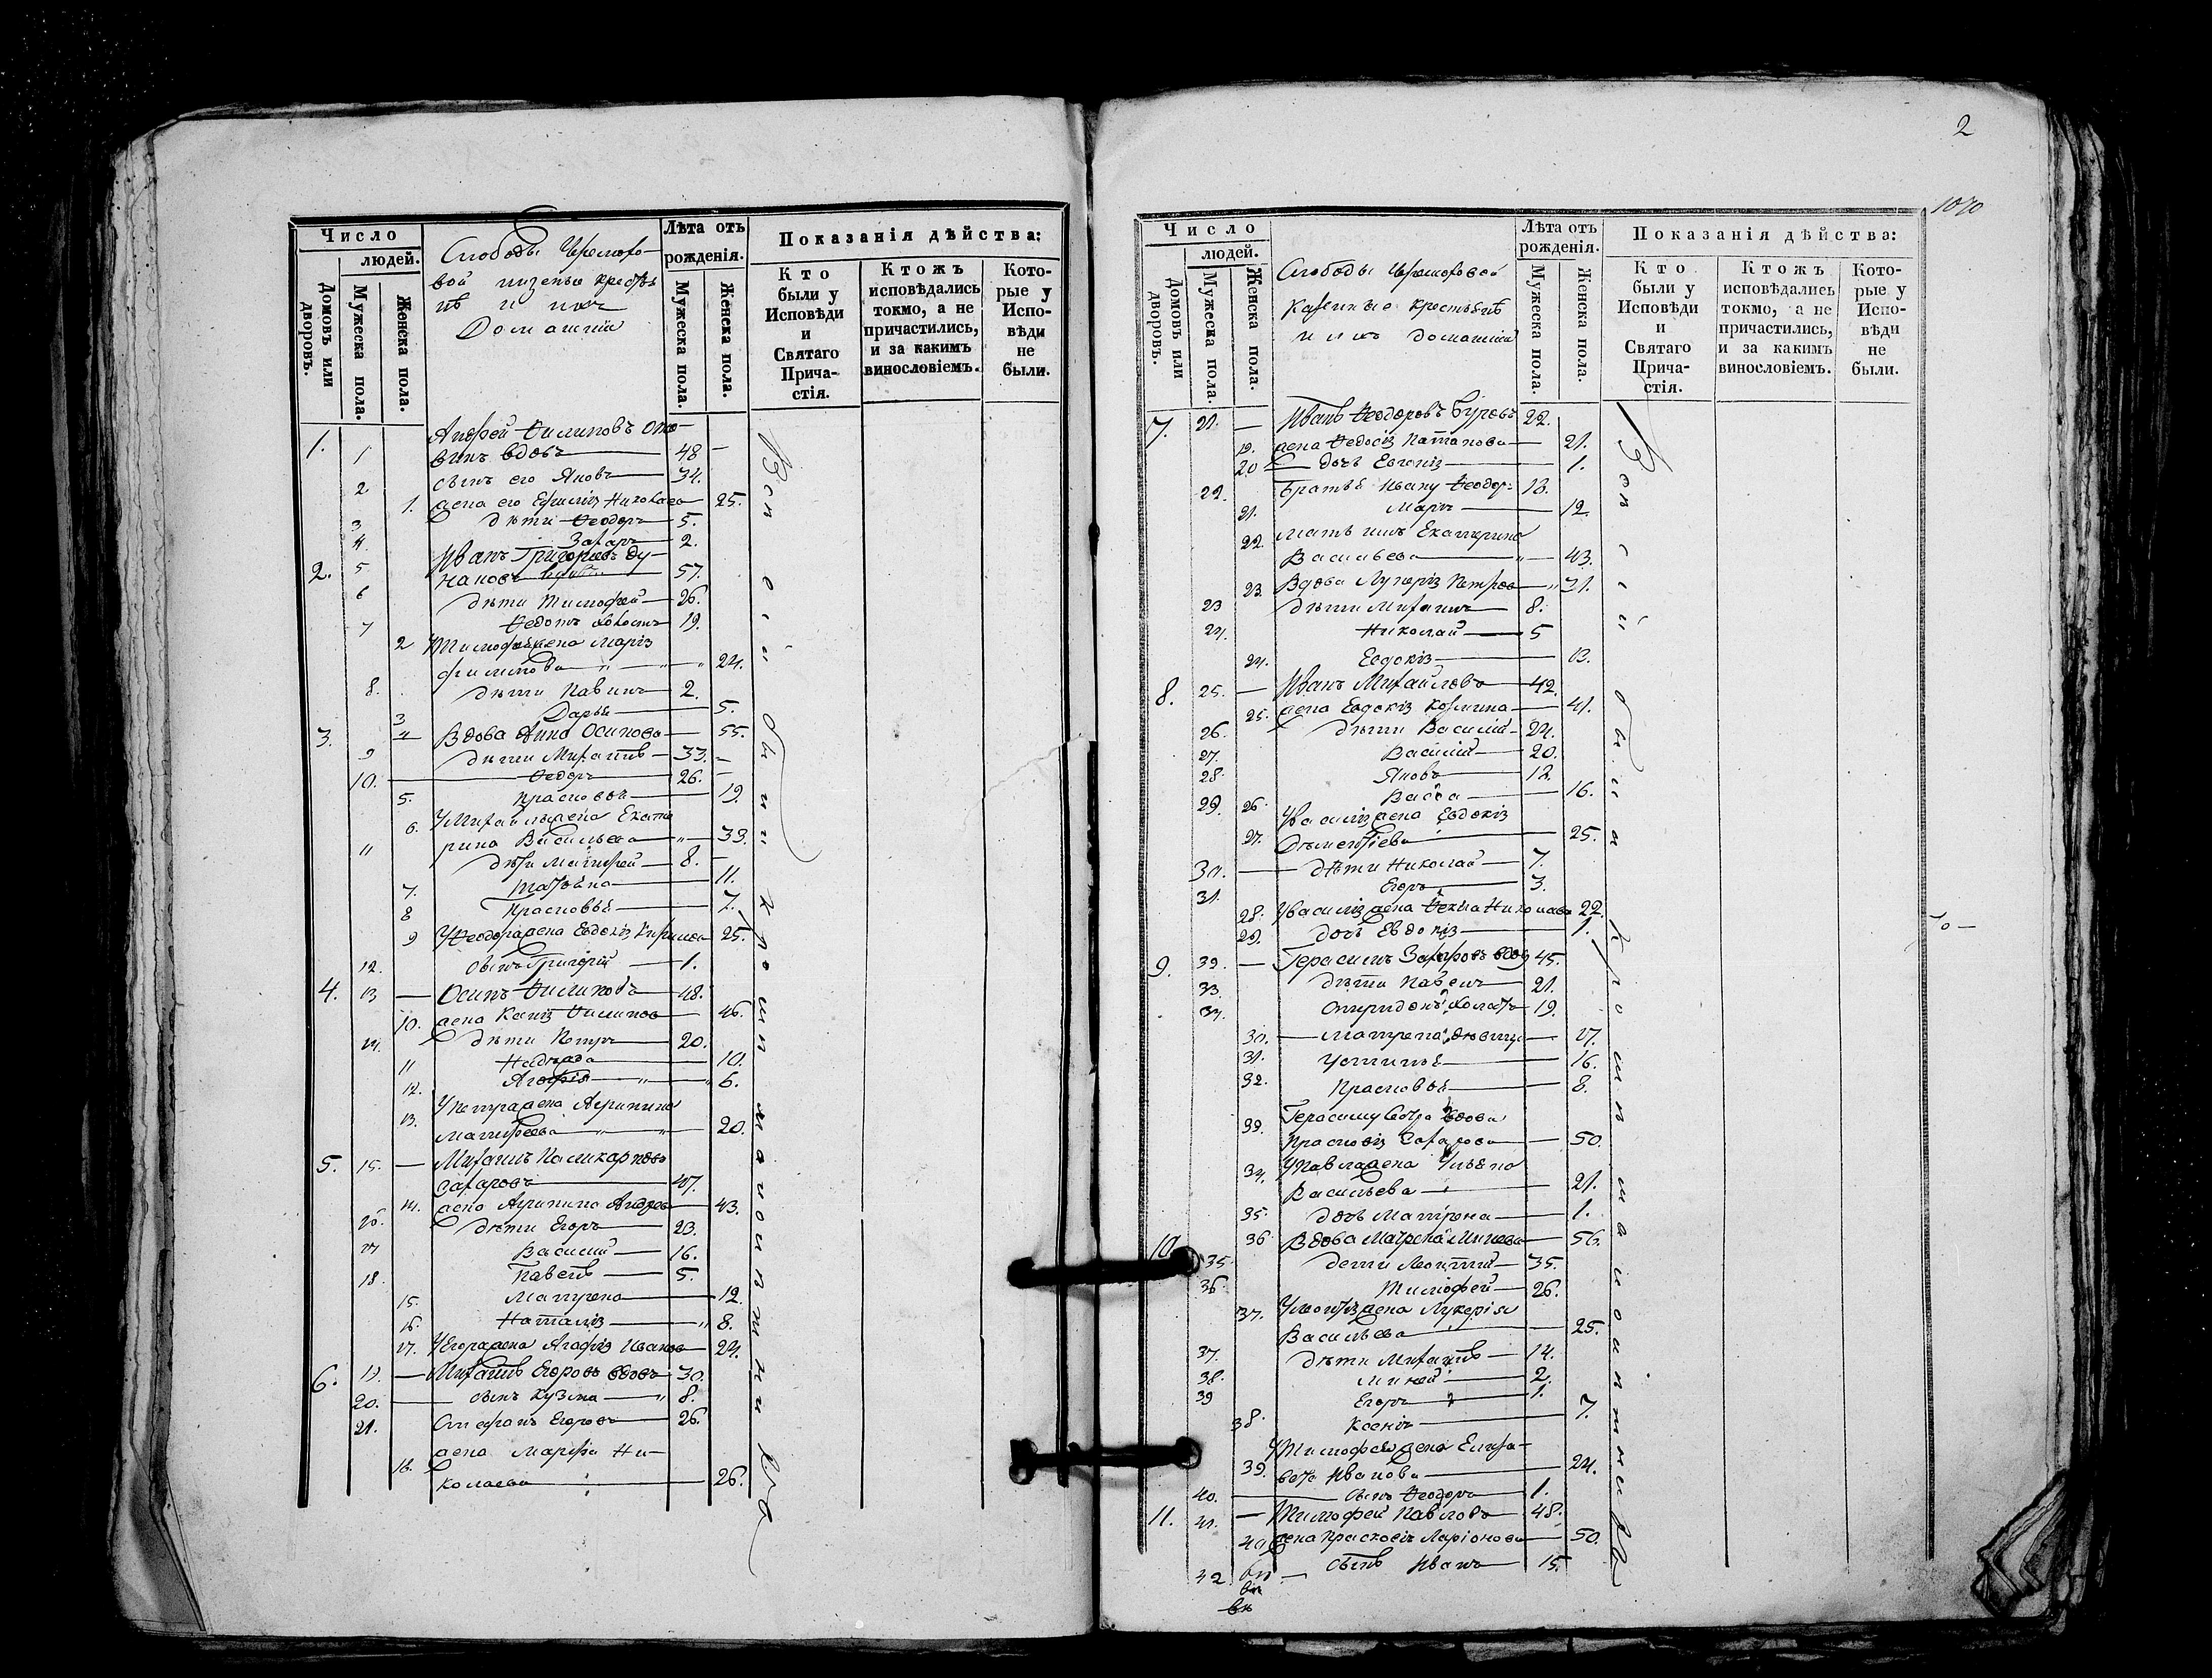 Число
людей.
Домовъ или дворовъ.
Мужеска пола.
Женска пола.
Слободы Черемохо-
вой крестья
нѣ и ихъ
Домашніи
Лѣта отъ
рожденія.
Мужеска пола.
Женска пола.
Показанія дѣйства:
Кто
были у
Исповѣди
и
Святаго
Прича-
стія.
Ктожъ
исповѣдались
токмо, а не
причастились,
и за какимъ
винословіемъ.
Кото-
рые у
Испо-
вѣди
не
были.
1. Андрей Филиповъ
1 вдовъ 48
2 сынъ его Яковъ 34.
1. жена его Николаева 25.
3 дѣти Феодоръ 5.
4. Захаръ 2.
2. 5 Иванъ Григорьевъ Ду-
наковъ 57.
6 дѣти Тимофей 26.
7 Федотъ холостъ 19.
2 Тимофея жена Марія
Филипова 24.
8. дѣти Павилъ 2.
3 Дарья 5.
3. 4 Вдова Анна Осипова 55.
9 дѣти Михаилъ 33.
10. Федоръ 26.
5. Прасковья 19.
6. У Михаила жена Екате
рина Васильева 33.
11 дѣти Матфей 8.
7. Татьяна 11.
8 Прасковья 7.
9 У Феодора жена Евдокія 25.
12. сынъ Григорій 1.
4. 13 Осипъ Филиповъ 48.
10. жена Филипова 46.
14. дѣти Петръ 20.
11 Надежда 10.
12. Агафія 6.
13. У Петра жена Агрипина
Матфеева 20.
5. 15. Михаилъ Поликарповъ
Захаровъ 47.
14. жена Агрипина Андреева 43.
16. дѣти Егоръ 23.
17 Василий 16.
18. Павелъ 5.
15. Матрена 12.
16. Наталія 8.
17. У Егора жена Агафія Иванова 24.
6. 19. Михаилъ Егоровъ вдовъ 30.
20. сынъ Кузма 8.
21. Стефанъ Егоровъ 26.
18. жена Марфа Ни-
колаева 26.
Вси сіи были
2
1070
Число
людей.
Домовъ или дворовъ.
Мужеска пола.
Женска пола.
Слободы Черемоховой
Казенные крестьянѣ
и ихъ домашніи
Лѣта отъ
рожденія.
Мужеска пола.
Женска пола.
Показанія дѣйства:
Кто
были у
Исповѣди
и
Святаго
Прича-
стія.
Ктожъ
исповѣдались
токмо, а не
причастились,
и за какимъ
винословіемъ.
Кото-
рые у
Испо-
вѣди
не
были.
7. 21. Иванъ Феодоровъ 22.
19. жена Федосія Патапова 21.
20 дочь Евгенія 1.
22. Братья Ивану Феодоръ 13.
21. Марія 12.
22. мать ихъ Екатерина
Васильева 43.
23. Вдова Лукерія Петрова 31.
23 дѣти Михаилъ 8.
24. Николай 5
24. Евдокія 13.
8. 25. Иванъ Михайловъ 42.
25. жена Евдокія Козмина 41.
26. дѣти Василій 24.
27. Василій 20.
28. Яковъ 12.
29. 26. Васса 16.
27. У Василія жена Евдокія
Дементіева 25.
30. дѣти Николай 7.
31. Егоръ 3.
28. У Василія жена Фекла Николаева 22.
29. дочь Евдокія 1.
9. 32. Герасимъ Захаровъ вдов 45.
33. дѣти Павелъ 21.
34. Спиридонъ холостъ 19.
30. Матрена дѣвица 17.
31. Устинья 16.
32. Прасковья 8.
33. Герасиму сестра вдова
Прасковія Захарова 50.
34. У Павла жена Ульяна
Васильева 21.
35. дочь Матрена 1.
10. 36. Вдова Матрена Минеева 56.
35. дети Леонтий 35.
36. Тимофей 26.
37. У Леонтія жена Лукерія
Васильева 25.
37. дѣти Михаилъ 14.
38. Миней 2.
39 Егоръ 1.
38. Ксенія 7.
39. У Тимофея жена Елиза-
вета Иванова 24.
40. сынъ Феодоръ 1.
11. 41. Тимофей Павловъ 48.
40. жена Прасковія Ларіонова 50.
42. сынъ Иванъ 15.
Вси сіи были